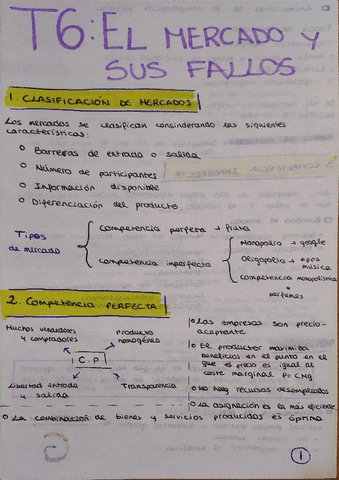 T6: EL MERCADO Y
SUS FALLOS
1. CLASIFICACIÓN DE MERCADOS
Los mercados se clasifican considerando las siguientes
características:
o Barreras de entrada o salida
o Número de participantes
o Información disponible
o Diferenciación del producto
Tipos
de mercado
competencia perfecta → fruta
competencia imperfecta
Monopolio → google
Oligopolio → apps
música
competencia monopolística
perfumes
2. COMPETENCIA PERFECTA
Muchos vendedores
y compradores
producto
homogéneo
C.P
Libertad entrada
y salida
Transparencia
o Las empresas son precio-
aceptante
o El productor maximiza
beneficios en el punto en el
que el precio es igual al
coste marginal P=CMg
o No hay recursos desempleados
o La asignación es la más eficiente
o La combinación de bienes y servicios producidos es óptima
1